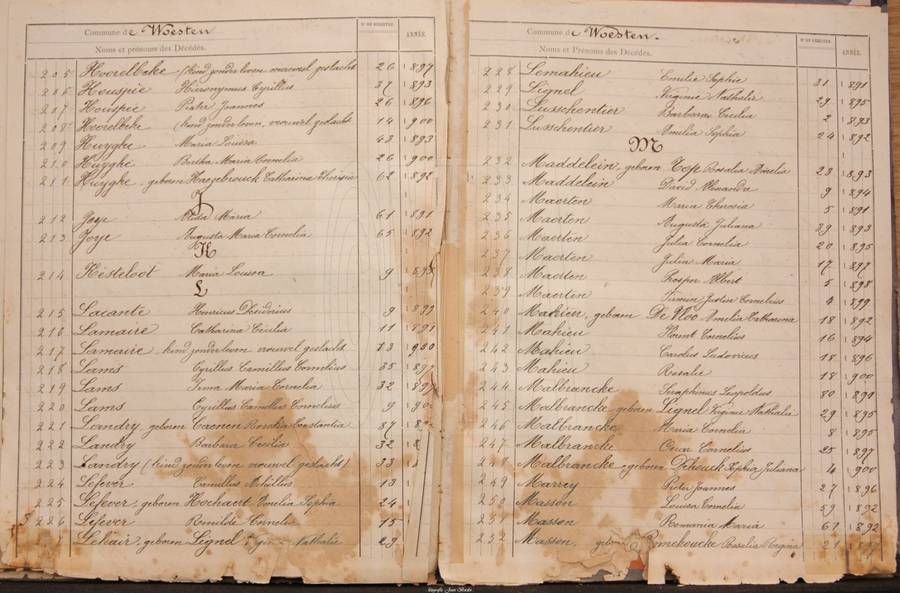 Commune de Woesten
Nº DE REGISTRE.
ANNÉE.
Noms et prénoms des Décédés.
205 Hoorelbeke (kind zonder leven mannel. geslacht 26 1897
206 Houspie Hieronymus Cyrillus 37 1893
207 Houspie Pieter Joannes 26 1896
208 Hoorelbeke (kind zonder leven, vrouwel. geslacht 14 1900
209 Huyghe Maria Louisa 63 1893
210 Huyghe Bertha Maria Cornelia 26 1900
211 Huyghe, geboren Haezebrouck Catharina Theresia 62 1892
J
212 Joye Alida Maria 61 1891
213 Joye Augusta Maria Cornelia 65 1892
K
214 Kesteloot Maria Louisa 9
L
215 Lacante Henricus Desiderius 9 1899
216 Lamaire Catharina Cecilia 11 1891
217 Lamaire, kind zonder leven vrouwel geslacht 13 1900
218 Lams Cyrillus Camillus Cornelius 35
219 Lams Irma Maria Cornelia 32
220 Lams Cyrillus Camillus Cornelius 9
221 Landry, geboren Caenen Constantia 87
222 Landry Barbara Cecilia 32
223 Landry (kind zonder leven vrouwel geslacht) 33
224 Lefever Camillus Achilles 13
225 Lefever, geboren Hochaert Emelia Sophia 24
226 Lefever Romilde Cornelie 15
geboren Lignel Nathalie 29
Commune de Woesten.
Nº DE REGISTRE.
ANNÉE.
Noms et Prénoms des Décédés.
228 Lemahieu Emilie Sophie 31 1891
229 Lignel Virginie Nathalie 29 1895
230 Lusschentier Barbara Cecilia 2 1893
231 Lusschentier Amelia Sophia 24 1892
M
232 Maddelein, geboren Top Rosalia Amelia 28 1893
233 Maddelein David Alexander 9 1894
234 Maerten Maria Theresia 5 1891
235 Maerten Augusta Juliana 29 1893
236 Maerten Julia Cornelia 20 1895
237 Maerten Julia Maria 17 1897
238 Maerten Prosper Albert 5 1898
239 Maerten Firmin Justin Cornelius 4 1899
240 Mahieu, geboren De Vloo Amelia Catharina 18 1892
241 Mahieu Cornelius 16 1894
242 Mahieu Carolus Ludovicus 18 1896
243 Mahieu Rosalie 18 1900
244 Malbrancke Seraphinus Leopoldus 80 1890
245 Malbrancke geboren Lignel Virginie Nathalia 29 1895
246 Malbrancke Maria Cornelia 8 1895
247 Malbrancke Cornelius 25 1897
Malbrancke, geboren Sophia Juliana 4 1900
249 Marrey Pieter Joannes 27 1896
250 Masson Louisa Cornelia 59 1892
251 Masson Romania Maria 61 1892
252 Masson, geboren Rosalia Regina 21